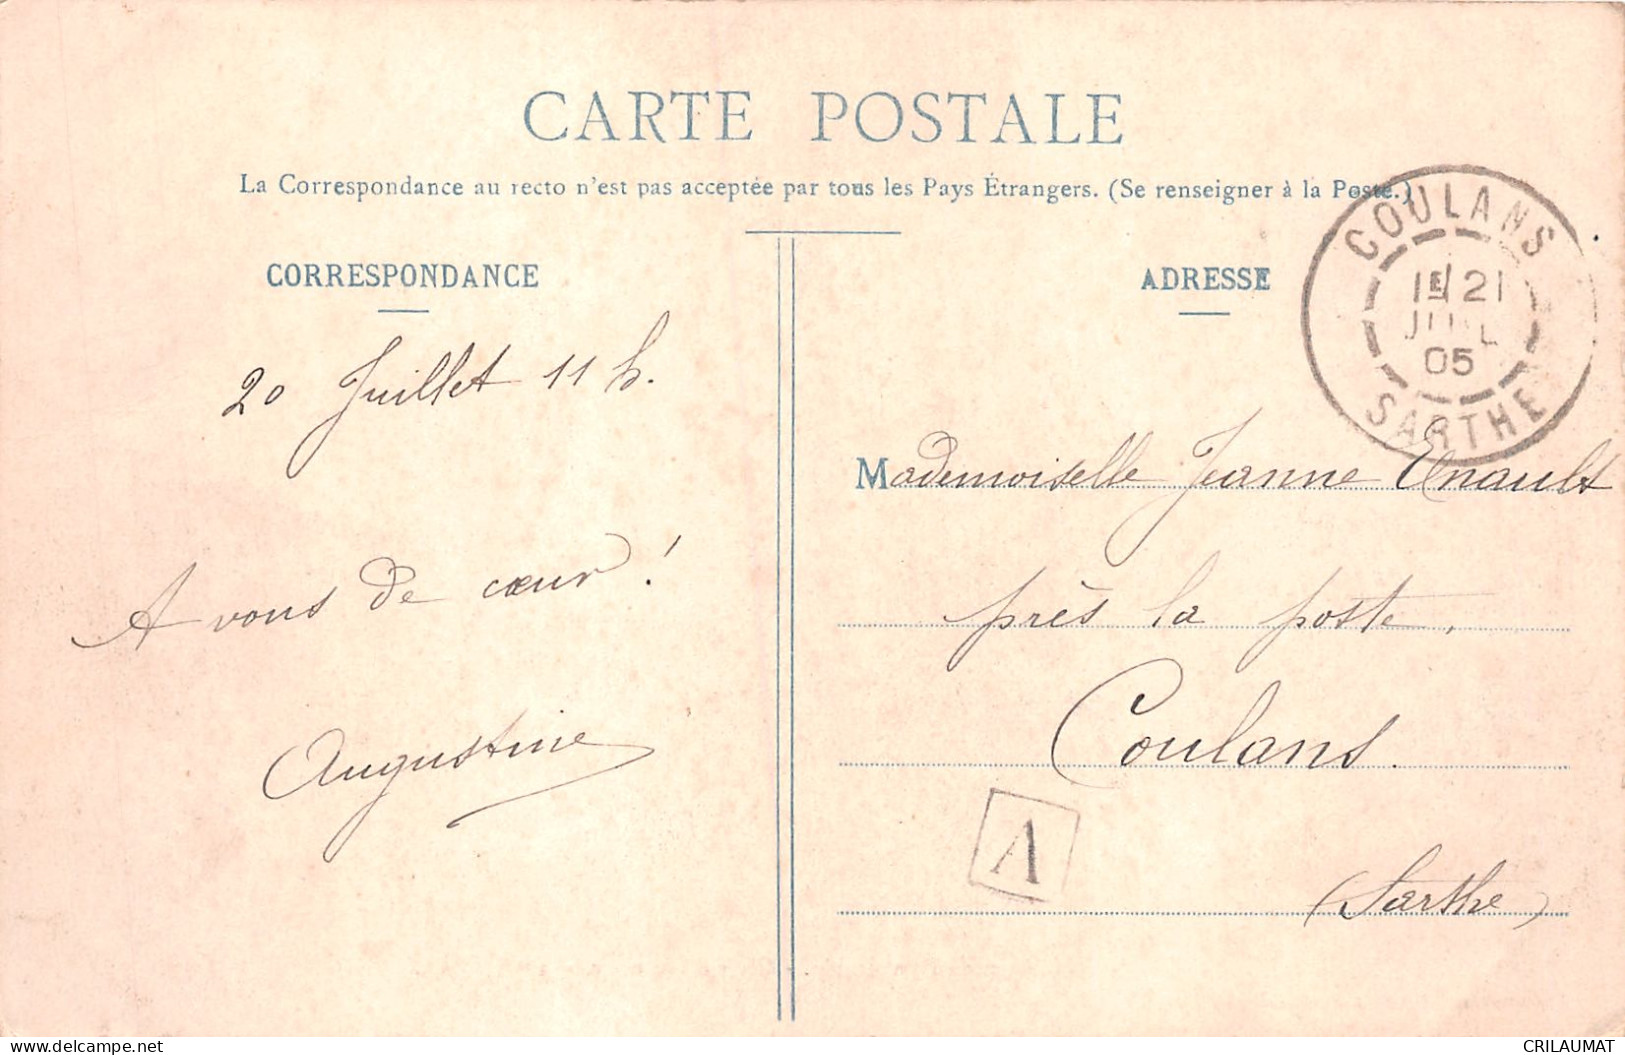 CARTE POSTALE
La Correspondance au recto n'est pas acceptée par tous les Pays Étrangers. (Se renseigner à la Poste.)
CORRESPONDANCE
20 Juillet 11 h.
A vous de cœur !
Augustine
ADRESSE
COULANS
1E 21
05
SARTHE
Mademoiselle Jeanne Enault
près la poste,
Coulans.
A
(Sarthe)
www.delcampe.net
CRILAUMAT